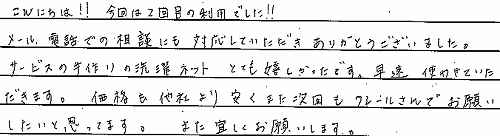 こんにちは!! 今回は2回目の利用でした!!
メール、電話での相談にも対応していただきありがとうございました。
サービスの手作りの洗濯ネット とても嬉しかったです。早速 使わせていた
だきます。 価格も他社より安くまた次回もクレールさんでお願い
したいと思ってます。 また宜しくお願いします。